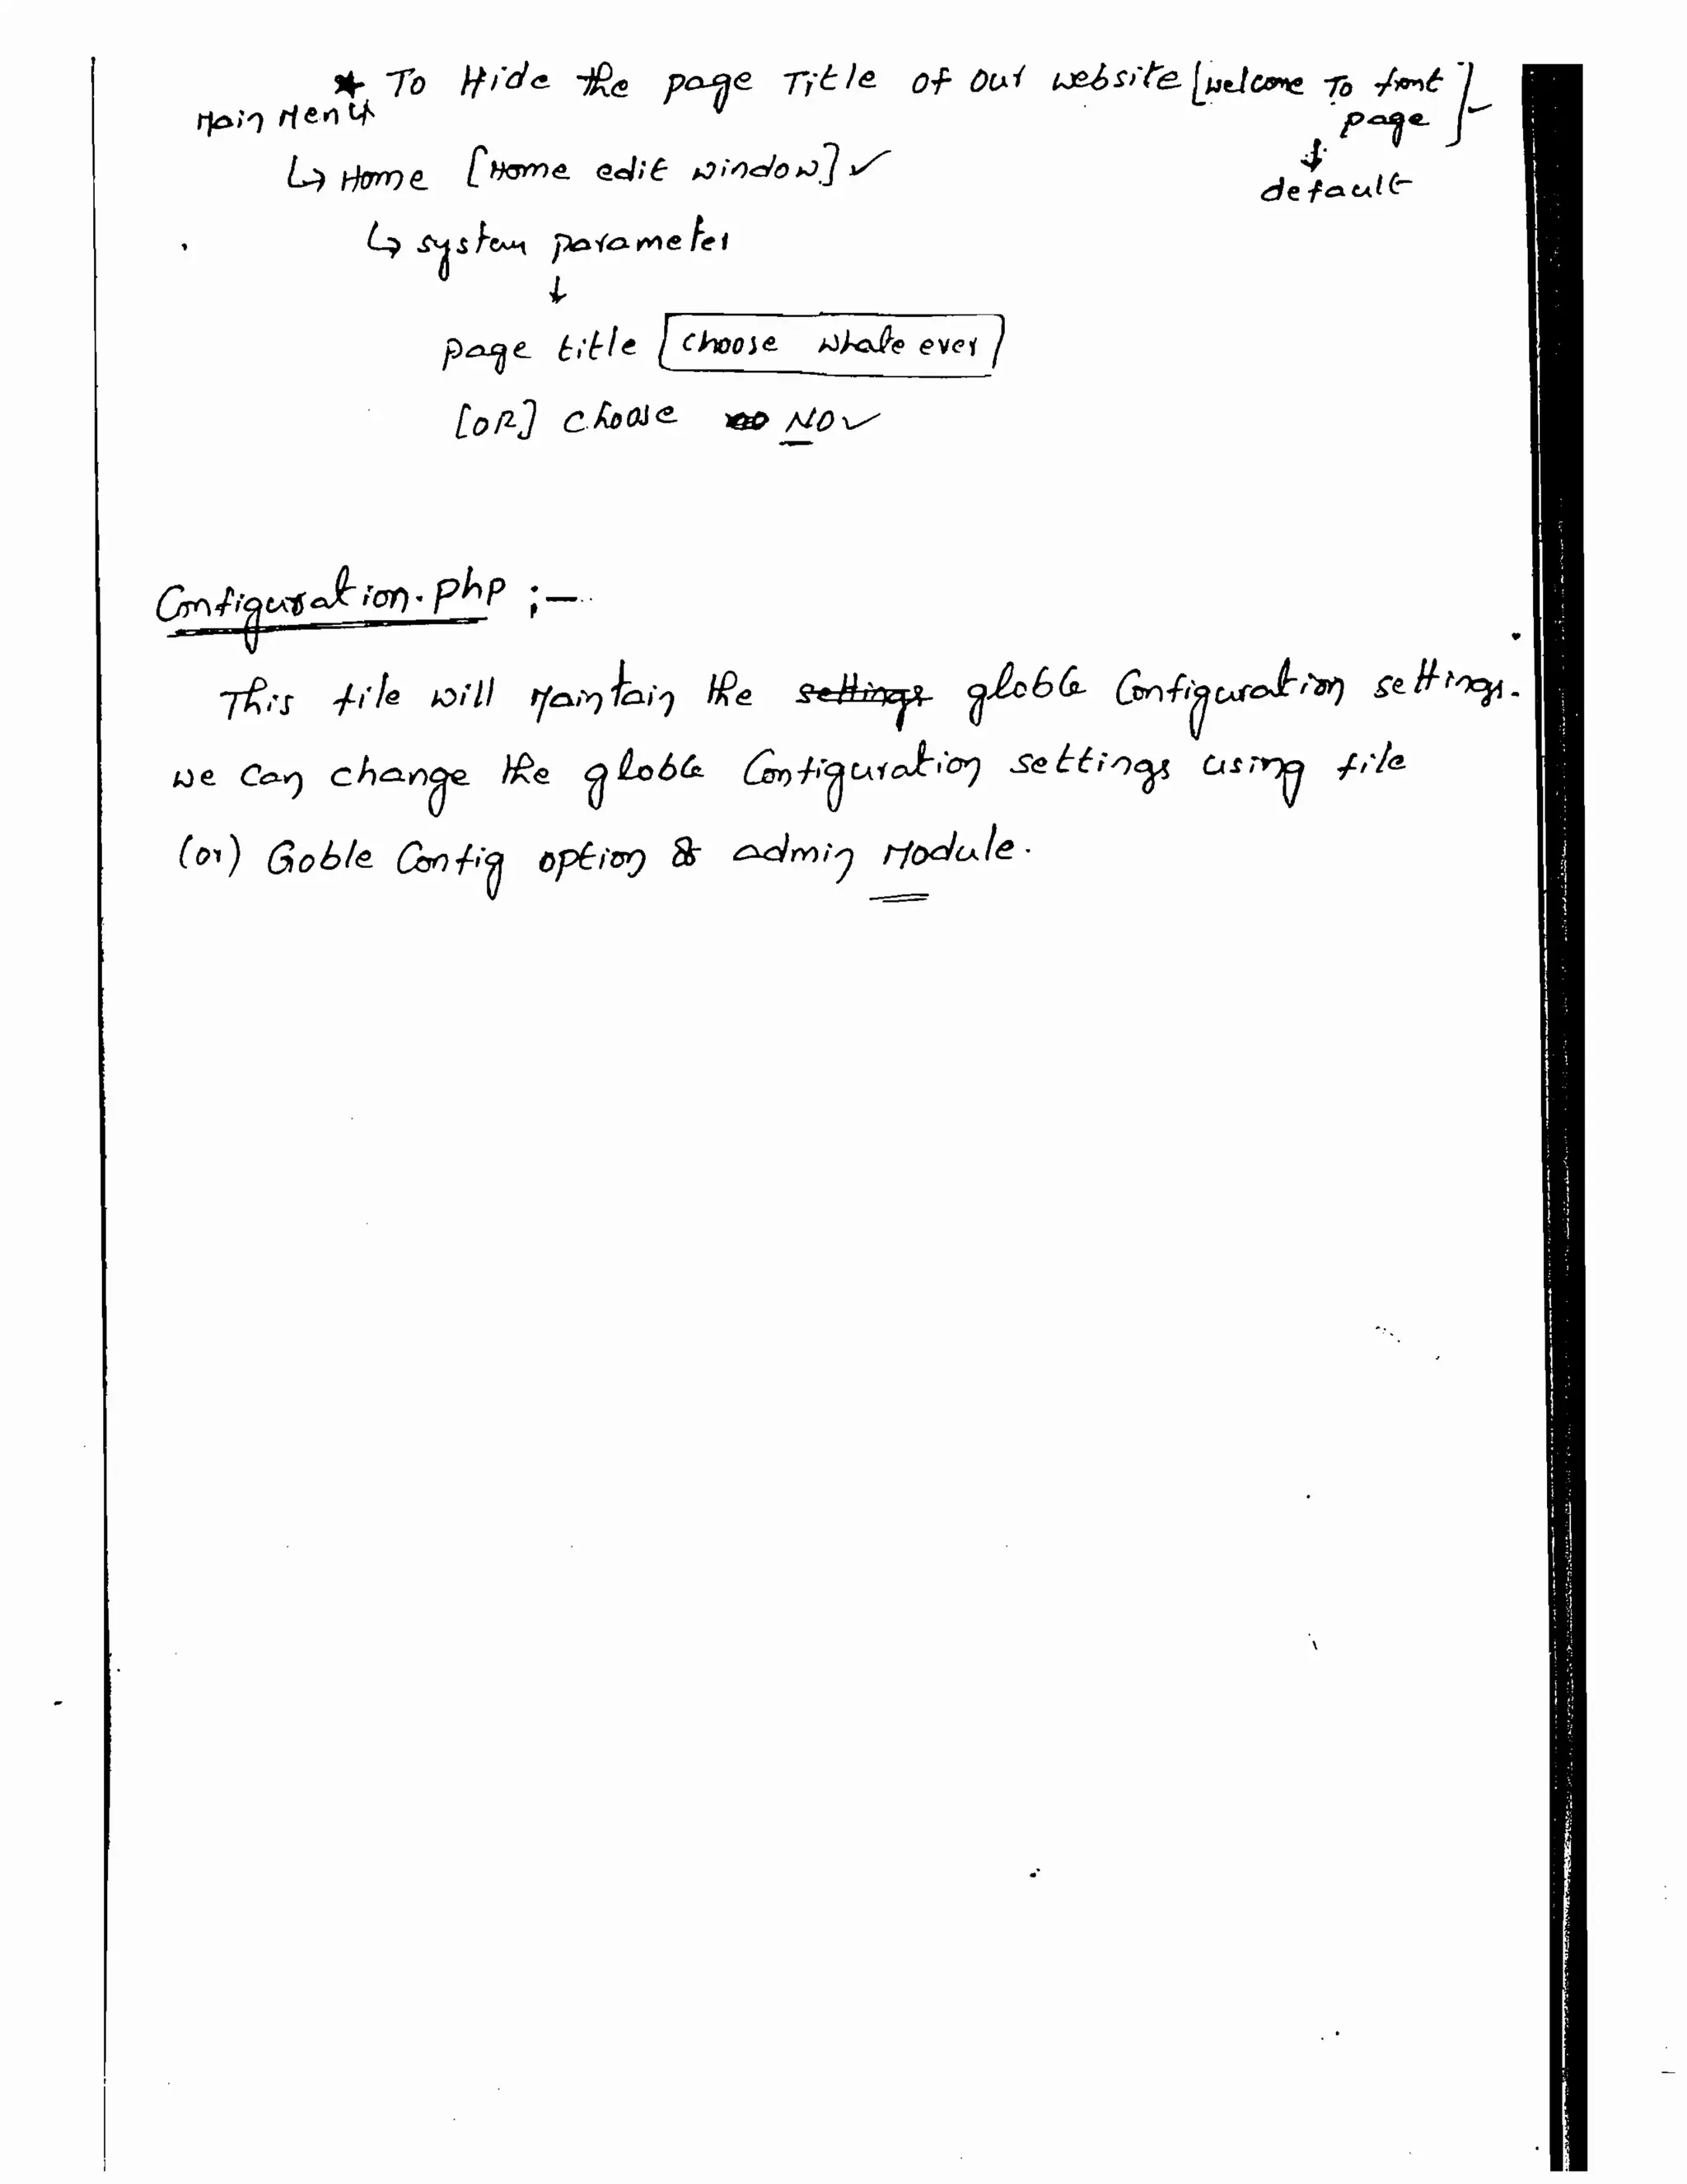 ★ To Hide the page Title of our website [welcome To font page] ✓
Main Menu
↓
default
↳ Home [Home edit window] ✓
↳ system parameter
↓
page title [choose whate ever]
[OR] choose NO ✓
Configuration.php :-
This file will Maintain the settings globle Configuration settings.
we can change the globle Configuration settings using file
(or) Goble Config option & admin Module.